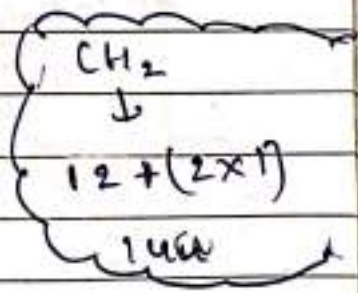 CH₂
↓
12 + (2×1)
14u